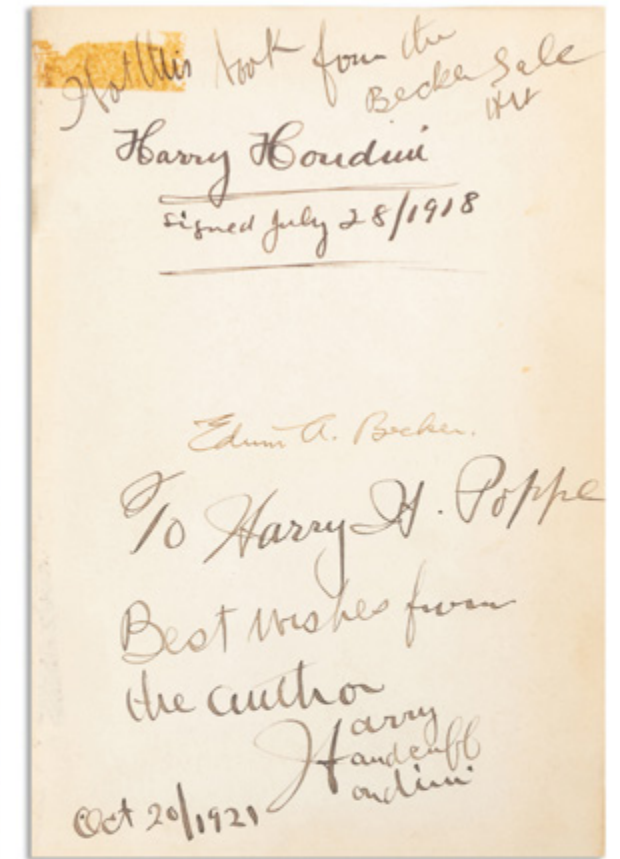 Got this book from the
Becker Sale
HH
Harry Houdini
signed July 28/1918
Edwin A. Becker.
To Harry H. Poppe
Best wishes from
the author
Harry
Handcuff
Houdini
Oct 20/1921